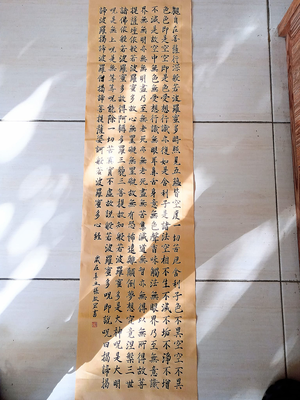 觀自在菩薩行深般若波羅蜜多時照見五蘊皆空度一切苦厄舍利子色不異空空不異
色色即是空空即是色受想行識亦復如是舍利子是諸法空相不生不滅不垢不淨不增
不減是故空中無色無受想行識無眼耳鼻舌身意無色聲香味觸法無眼界乃至無意識
界無無明亦無無明盡乃至無老死亦無老死盡無苦集滅道無智亦無得以無所得故菩
提薩埵依般若波羅蜜多故心無罣礙無罣礙故無有恐怖遠離顛倒夢想究竟涅槃三世
諸佛依般若波羅蜜多故得阿耨多羅三藐三菩提故知般若波羅蜜多是大神咒是大明
咒是無上咒是無等等咒能除一切苦真實不虛故說般若波羅蜜多咒即說咒曰揭諦揭
諦波羅揭諦波羅僧揭諦菩提薩婆訶般若波羅蜜多心經 歲在辛丑